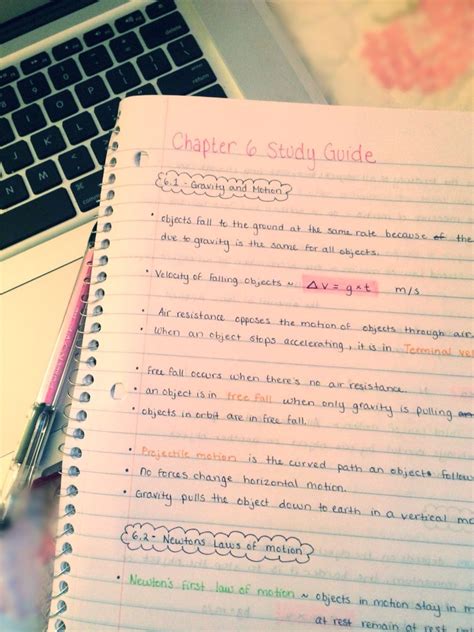 Chapter 6 Study Guide
6.1 - Gravity and Motion
• objects fall to the ground at the same rate because of the
due to gravity is the same for all objects.
• Velocity of falling objects ~ Δv = g×t m/s
• Air resistance opposes the motion of objects through air.
• When an object stops accelerating, it is in Terminal vel
• Free fall occurs when there's no air resistance.
• an object is in free fall when only gravity is pulling
• objects in orbit are in free fall.
• Projectile motion is the curved path an object follow
• No forces change horizontal motion.
• Gravity pulls the object down to earth in a vertical m
6.2 - Newtons Laws of motion
• Newton's first law of motion ~ objects in motion stay in m
at rest remain at rest